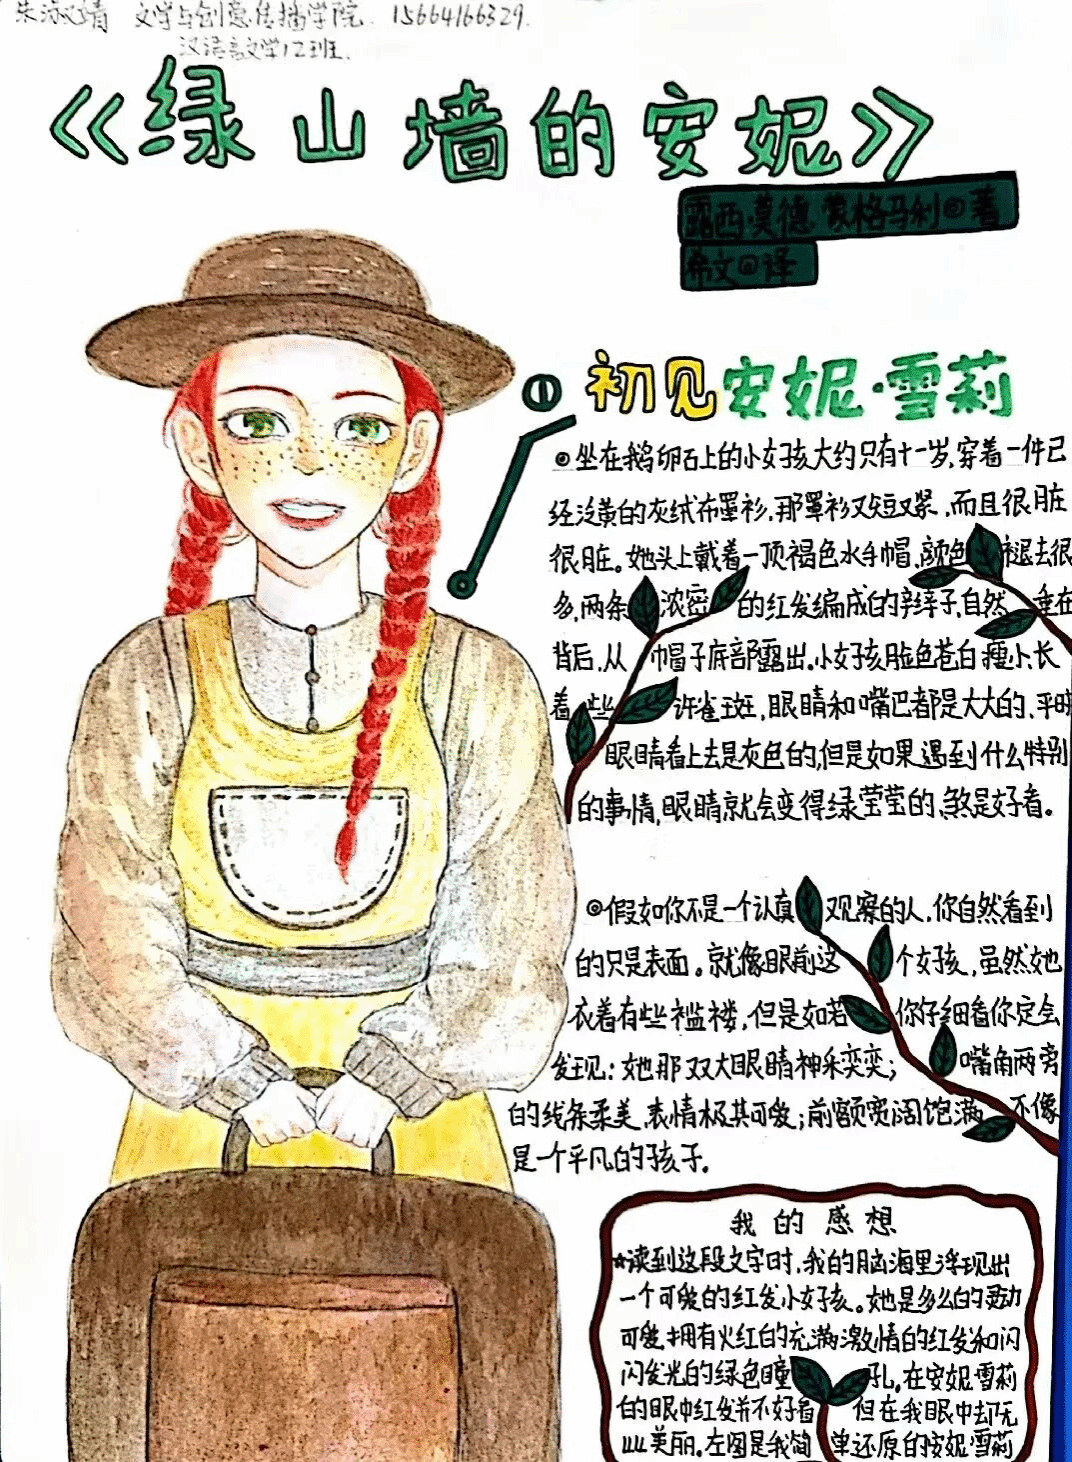 朱泳靖 文学与创意传播学院 15664166329.
汉语言文学12班.
《绿山墙的安妮》
露西·莫德·蒙格马利◎著
希文◎译
① 初见安妮·雪莉
◎坐在鹅卵石上的小女孩大约只有十一岁,穿着一件已
经泛黄的灰绒布罩衫,那罩衫又短又紧,而且很脏
很脏。她头上戴着一顶褐色水手帽,颜色 褪去很
多,两条 浓密 的红发编成的辫子,自然 垂在
背后,从 帽子底部露出。小女孩脸色苍白瘦小,长
着些 许雀斑,眼睛和嘴巴都是大大的、平时
眼睛看上去是灰色的,但是如果遇到什么特别
的事情,眼睛就会变得绿莹莹的,煞是好看。
◎假如你不是一个认真 观察的人,你自然看到
的只是表面。就像眼前这 个女孩,虽然她
衣着有些褴褛,但是如若 你仔细看你定会
发现:她那双大眼睛神采奕奕; 嘴角两旁
的线条柔美,表情极其可爱;前额宽阔饱满 不像
是一个平凡的孩子.
我的感想
★读到这段文字时,我的脑海里浮现出
一个可爱的红发小女孩。她是多么的灵动
可爱,拥有火红的充满激情的红发和闪
闪发光的绿色瞳 孔。在安妮雪莉
的眼中红发并不好看 但在我眼中却无
比美丽。左图是我简 单还原的安妮·雪莉